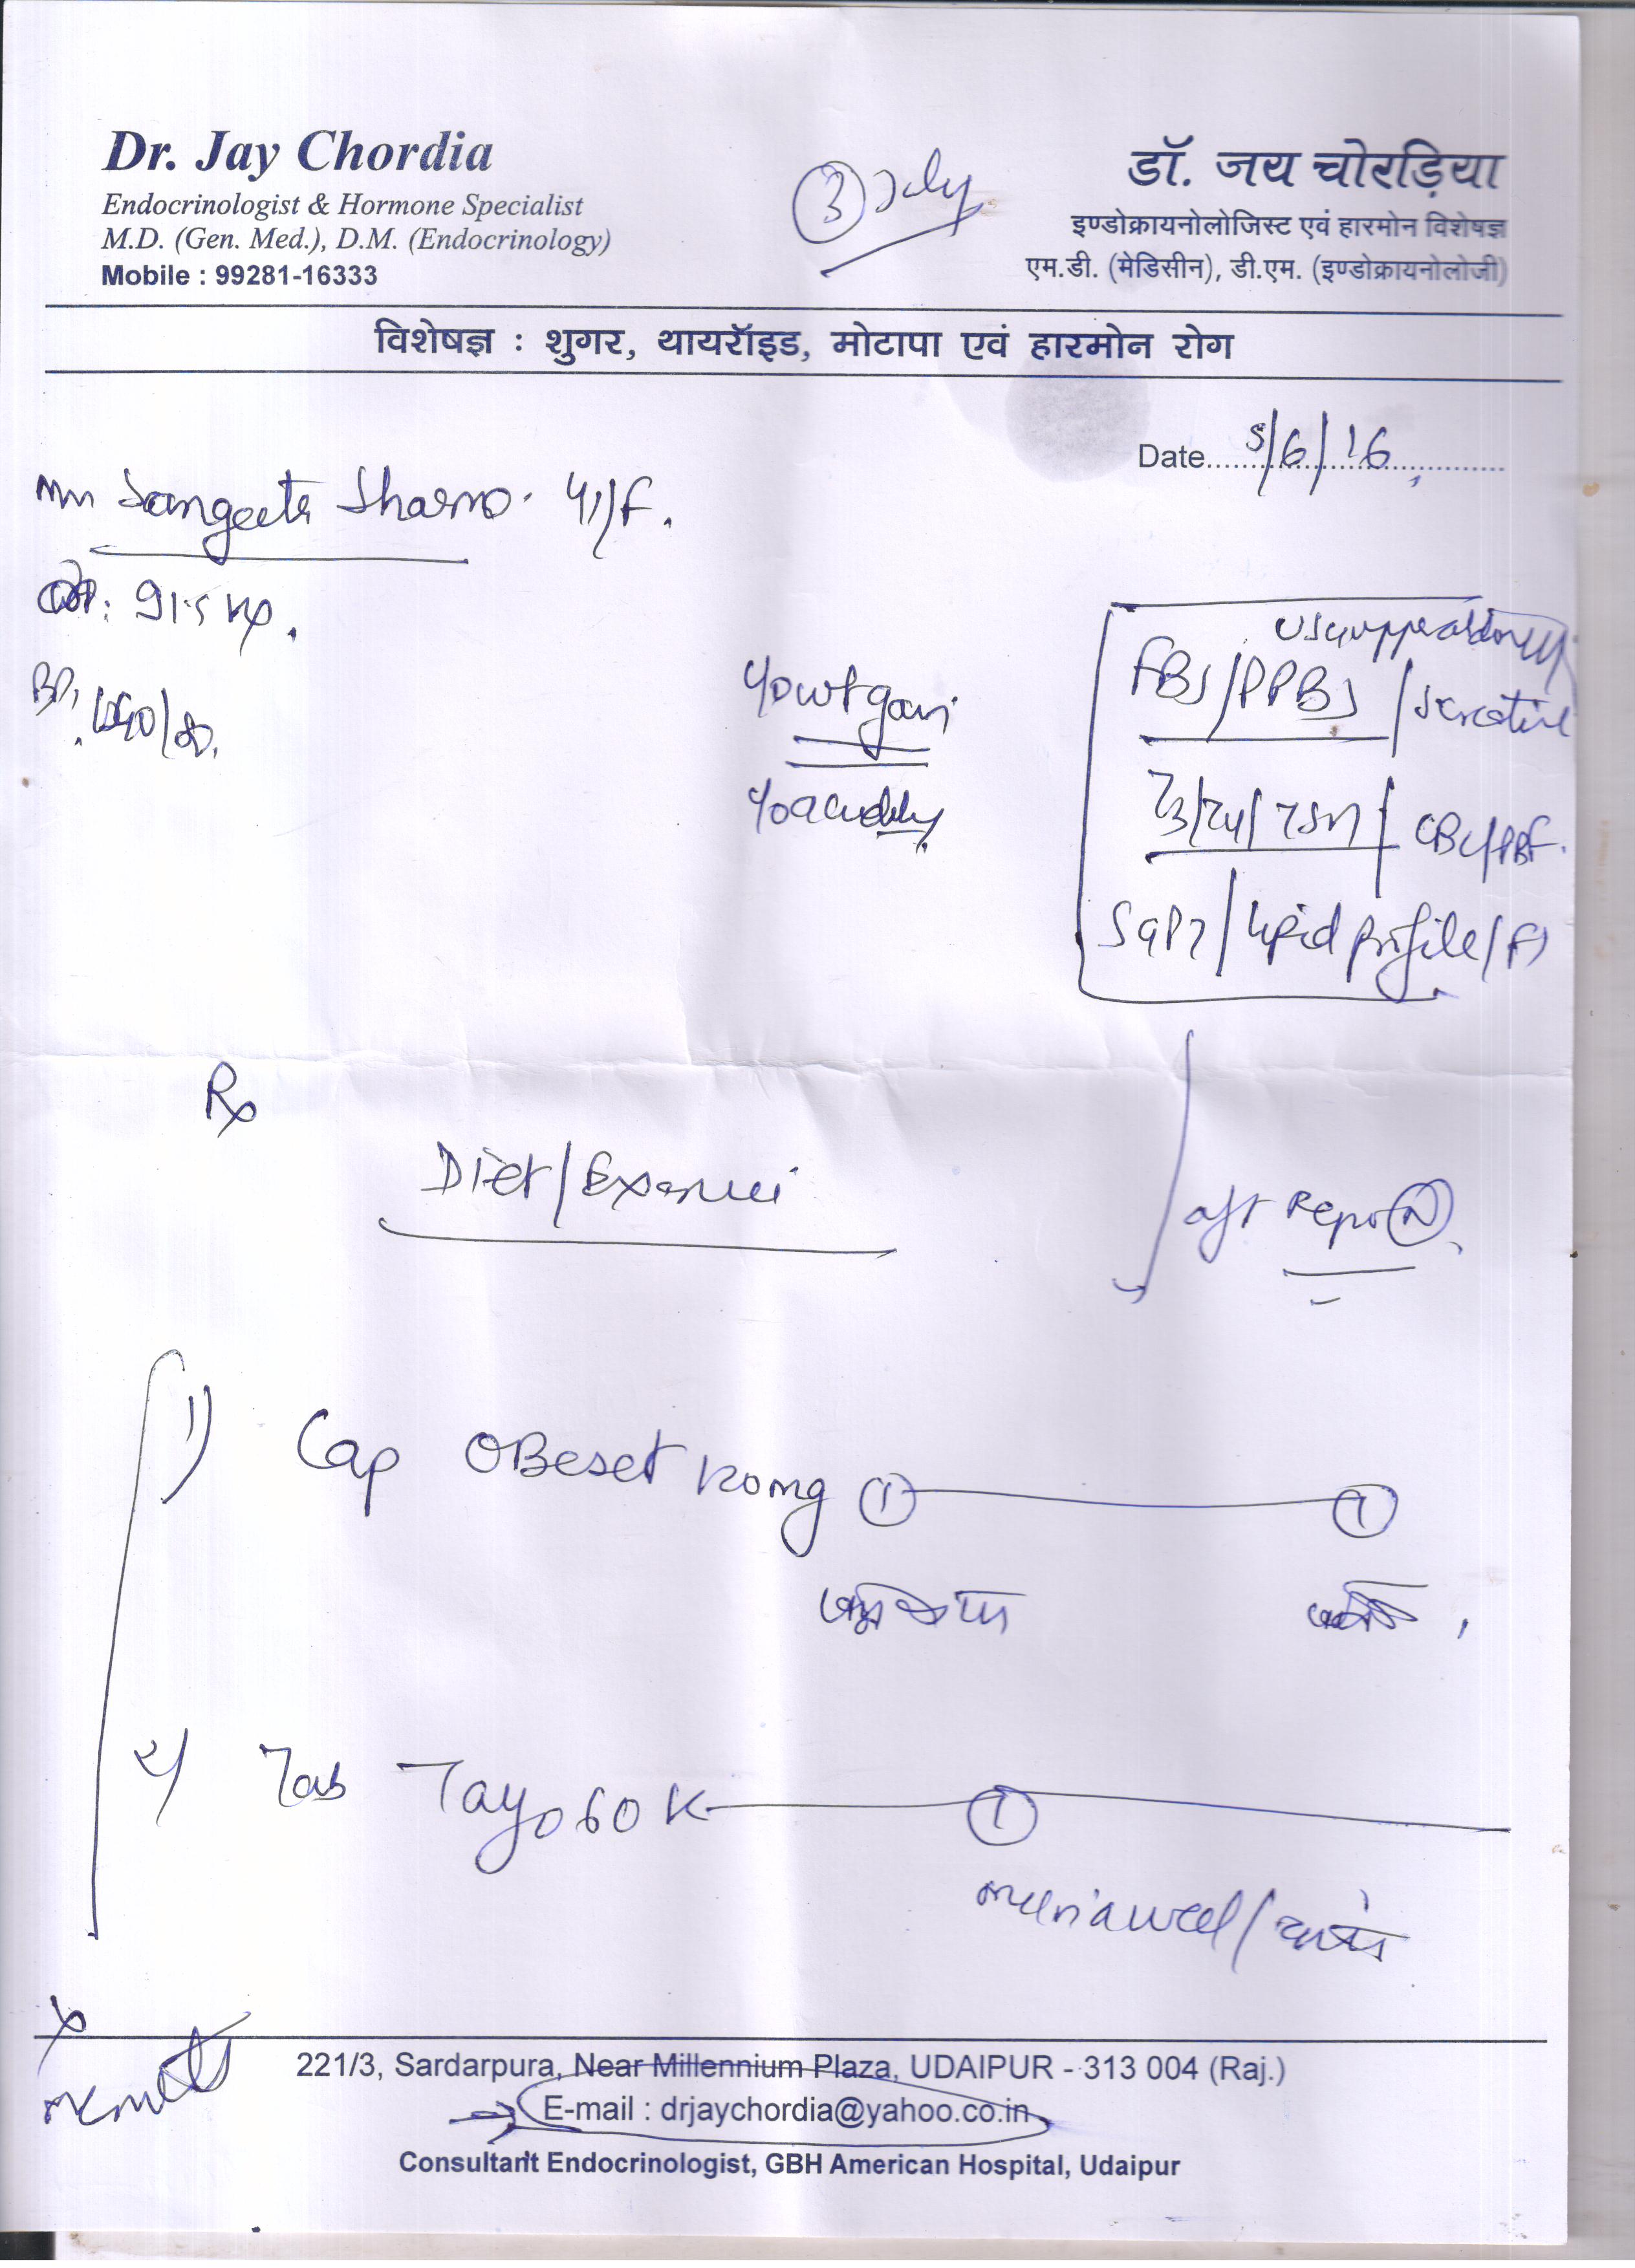 Dr. Jay Chordia
Endocrinologist & Hormone Specialist
M.D. (Gen. Med.), D.M. (Endocrinology)
Mobile : 99281-16333
3 July
डॉ. जय चोरड़िया
इण्डोक्रायनोलोजिस्ट एवं हारमोन विशेषज्ञ
एम.डी. (मेडिसीन), डी.एम. (इण्डोक्रायनोलोजी)
विशेषज्ञ : शुगर, थायरॉइड, मोटापा एवं हारमोन रोग
Date 5/6/16
Sangeeta Sharma. 41/F.
91.5 kg.
BP:
y/o wt gain
y/o acidity
FBS/PPBS / S.creatine
T3/T4/TSH / CBC/PBF.
SGPT / Lipid profile /
Rx
Diet/Exercise
aft Repo(N)
1) Cap OBeset 120mg 1 1
2) Tab Tayo 60K 1
221/3, Sardarpura, Near Millennium Plaza, UDAIPUR - 313 004 (Raj.)
E-mail : drjaychordia@yahoo.co.in
Consultant Endocrinologist, GBH American Hospital, Udaipur